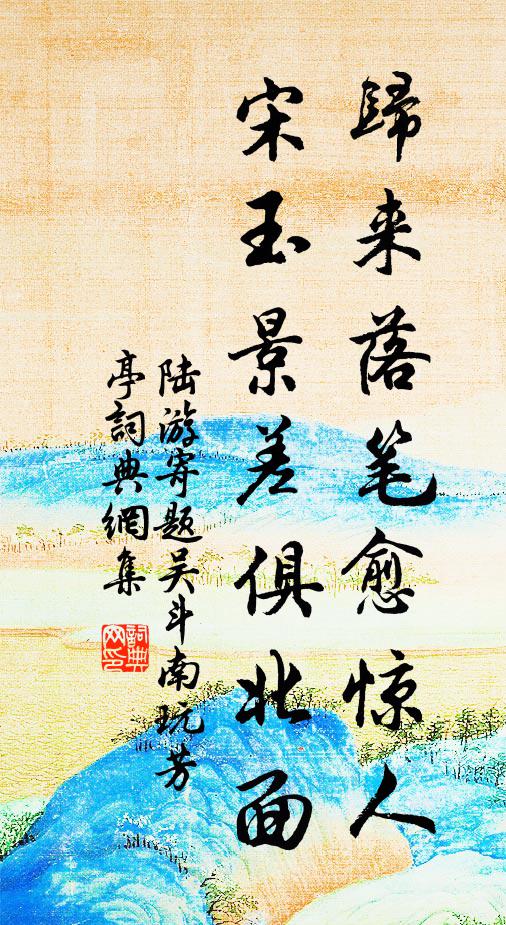 歸来落笔愈惊人
宋玉景差俱北面
陆游寄题吴斗南玩芳
亭詞典網集
詞典